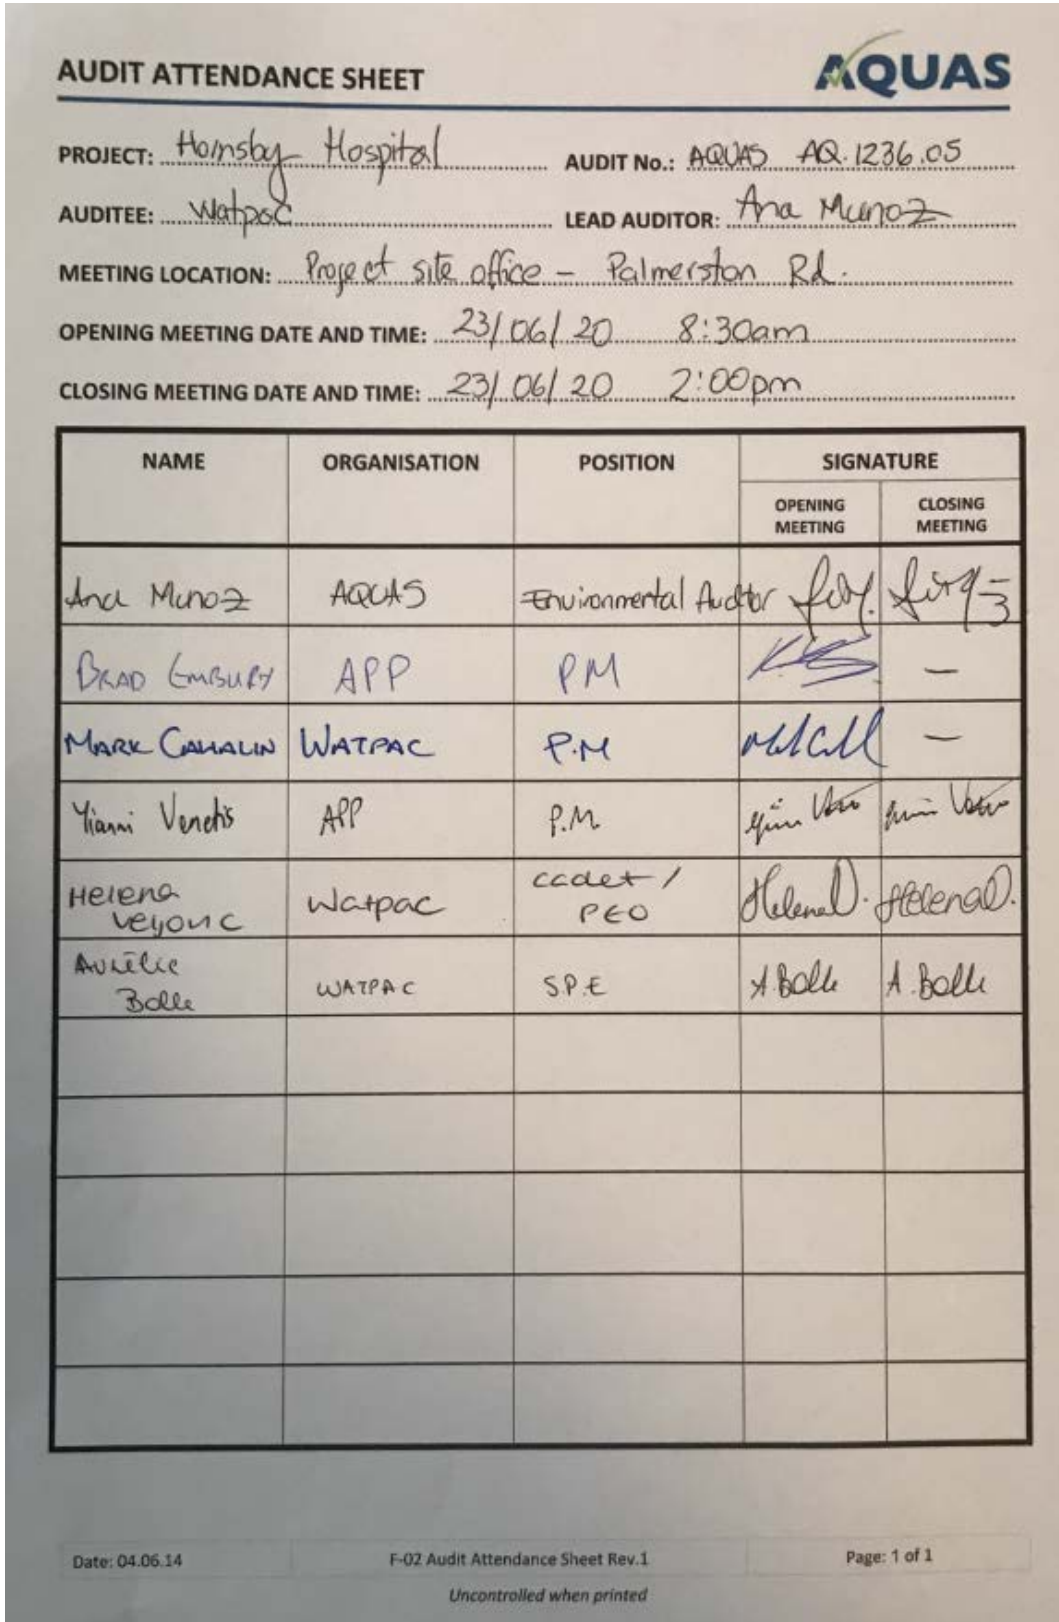 AUDIT ATTENDANCE SHEET
AQUAS
PROJECT: Hornsby Hospital AUDIT No.: AQUAS AQ.1236.05
AUDITEE: Watpac LEAD AUDITOR: Ana Munoz
MEETING LOCATION: Project site office – Palmerston Rd.
OPENING MEETING DATE AND TIME: 23/06/20 8:30am
CLOSING MEETING DATE AND TIME: 23/06/20 2:00pm
NAME ORGANISATION POSITION SIGNATURE
OPENING MEETING CLOSING MEETING
Ana Munoz AQUAS Environmental Auditor
BRAD EMBURY APP PM –
MARK CAHALIN WATPAC P.M –
Yianni Venetis APP P.M.
Helena Watpac cadet / PEO Helena Helena
Aurélie Bolle WATPAC S.P.E A.Bolle A.Bolle
Date: 04.06.14 F-02 Audit Attendance Sheet Rev.1 Page: 1 of 1
Uncontrolled when printed